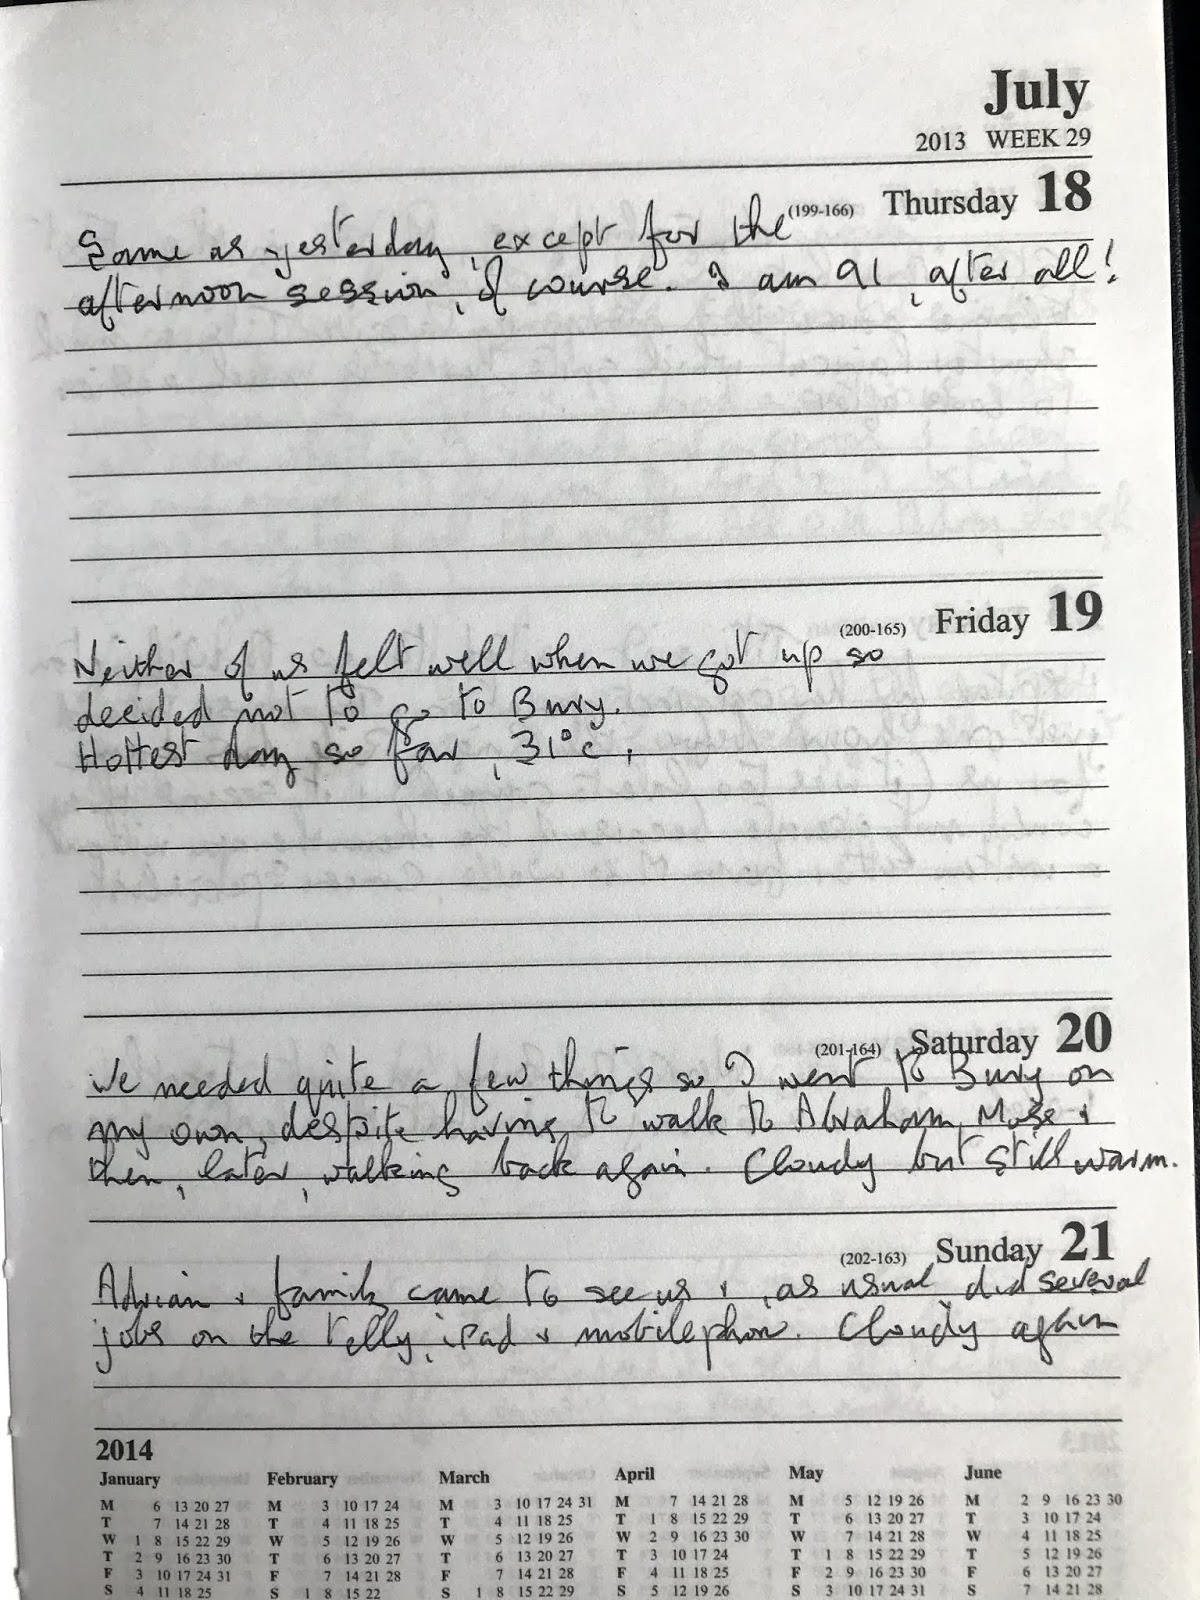 July
2013 WEEK 29
(199-166) Thursday 18
Same as yesterday, except for the
afternoon session, of course. I am 91, after all!
(200-165) Friday 19
Neither of us felt well when we got up so
decided not to go to Bury.
Hottest day so far, 31°c.
(201-164) Saturday 20
We needed quite a few things so I went to Bury on
my own, despite having to walk to Abraham Moss &
then, later, walking back again. Cloudy but still warm.
(202-163) Sunday 21
Adrian & family came to see us &, as usual, did several
jobs on the telly, ipad & mobilephone. Cloudy again
2014
January February March April May June
M 6 13 20 27 M 3 10 17 24 M 3 10 17 24 31 M 7 14 21 28 M 5 12 19 26 M 2 9 16 23 30
T 7 14 21 28 T 4 11 18 25 T 4 11 18 25 T 1 8 15 22 29 T 6 13 20 27 T 3 10 17 24
W 1 8 15 22 29 W 5 12 19 26 W 5 12 19 26 W 2 9 16 23 30 W 7 14 21 28 W 4 11 18 25
T 2 9 16 23 30 T 6 13 20 27 T 6 13 20 27 T 3 10 17 24 T 1 8 15 22 29 T 5 12 19 26
F 3 10 17 24 31 F 7 14 21 28 F 7 14 21 28 F 4 11 18 25 F 2 9 16 23 30 F 6 13 20 27
S 4 11 18 25 S 1 8 15 22 S 1 8 15 22 29 S 5 12 19 26 S 3 10 17 24 31 S 7 14 21 28